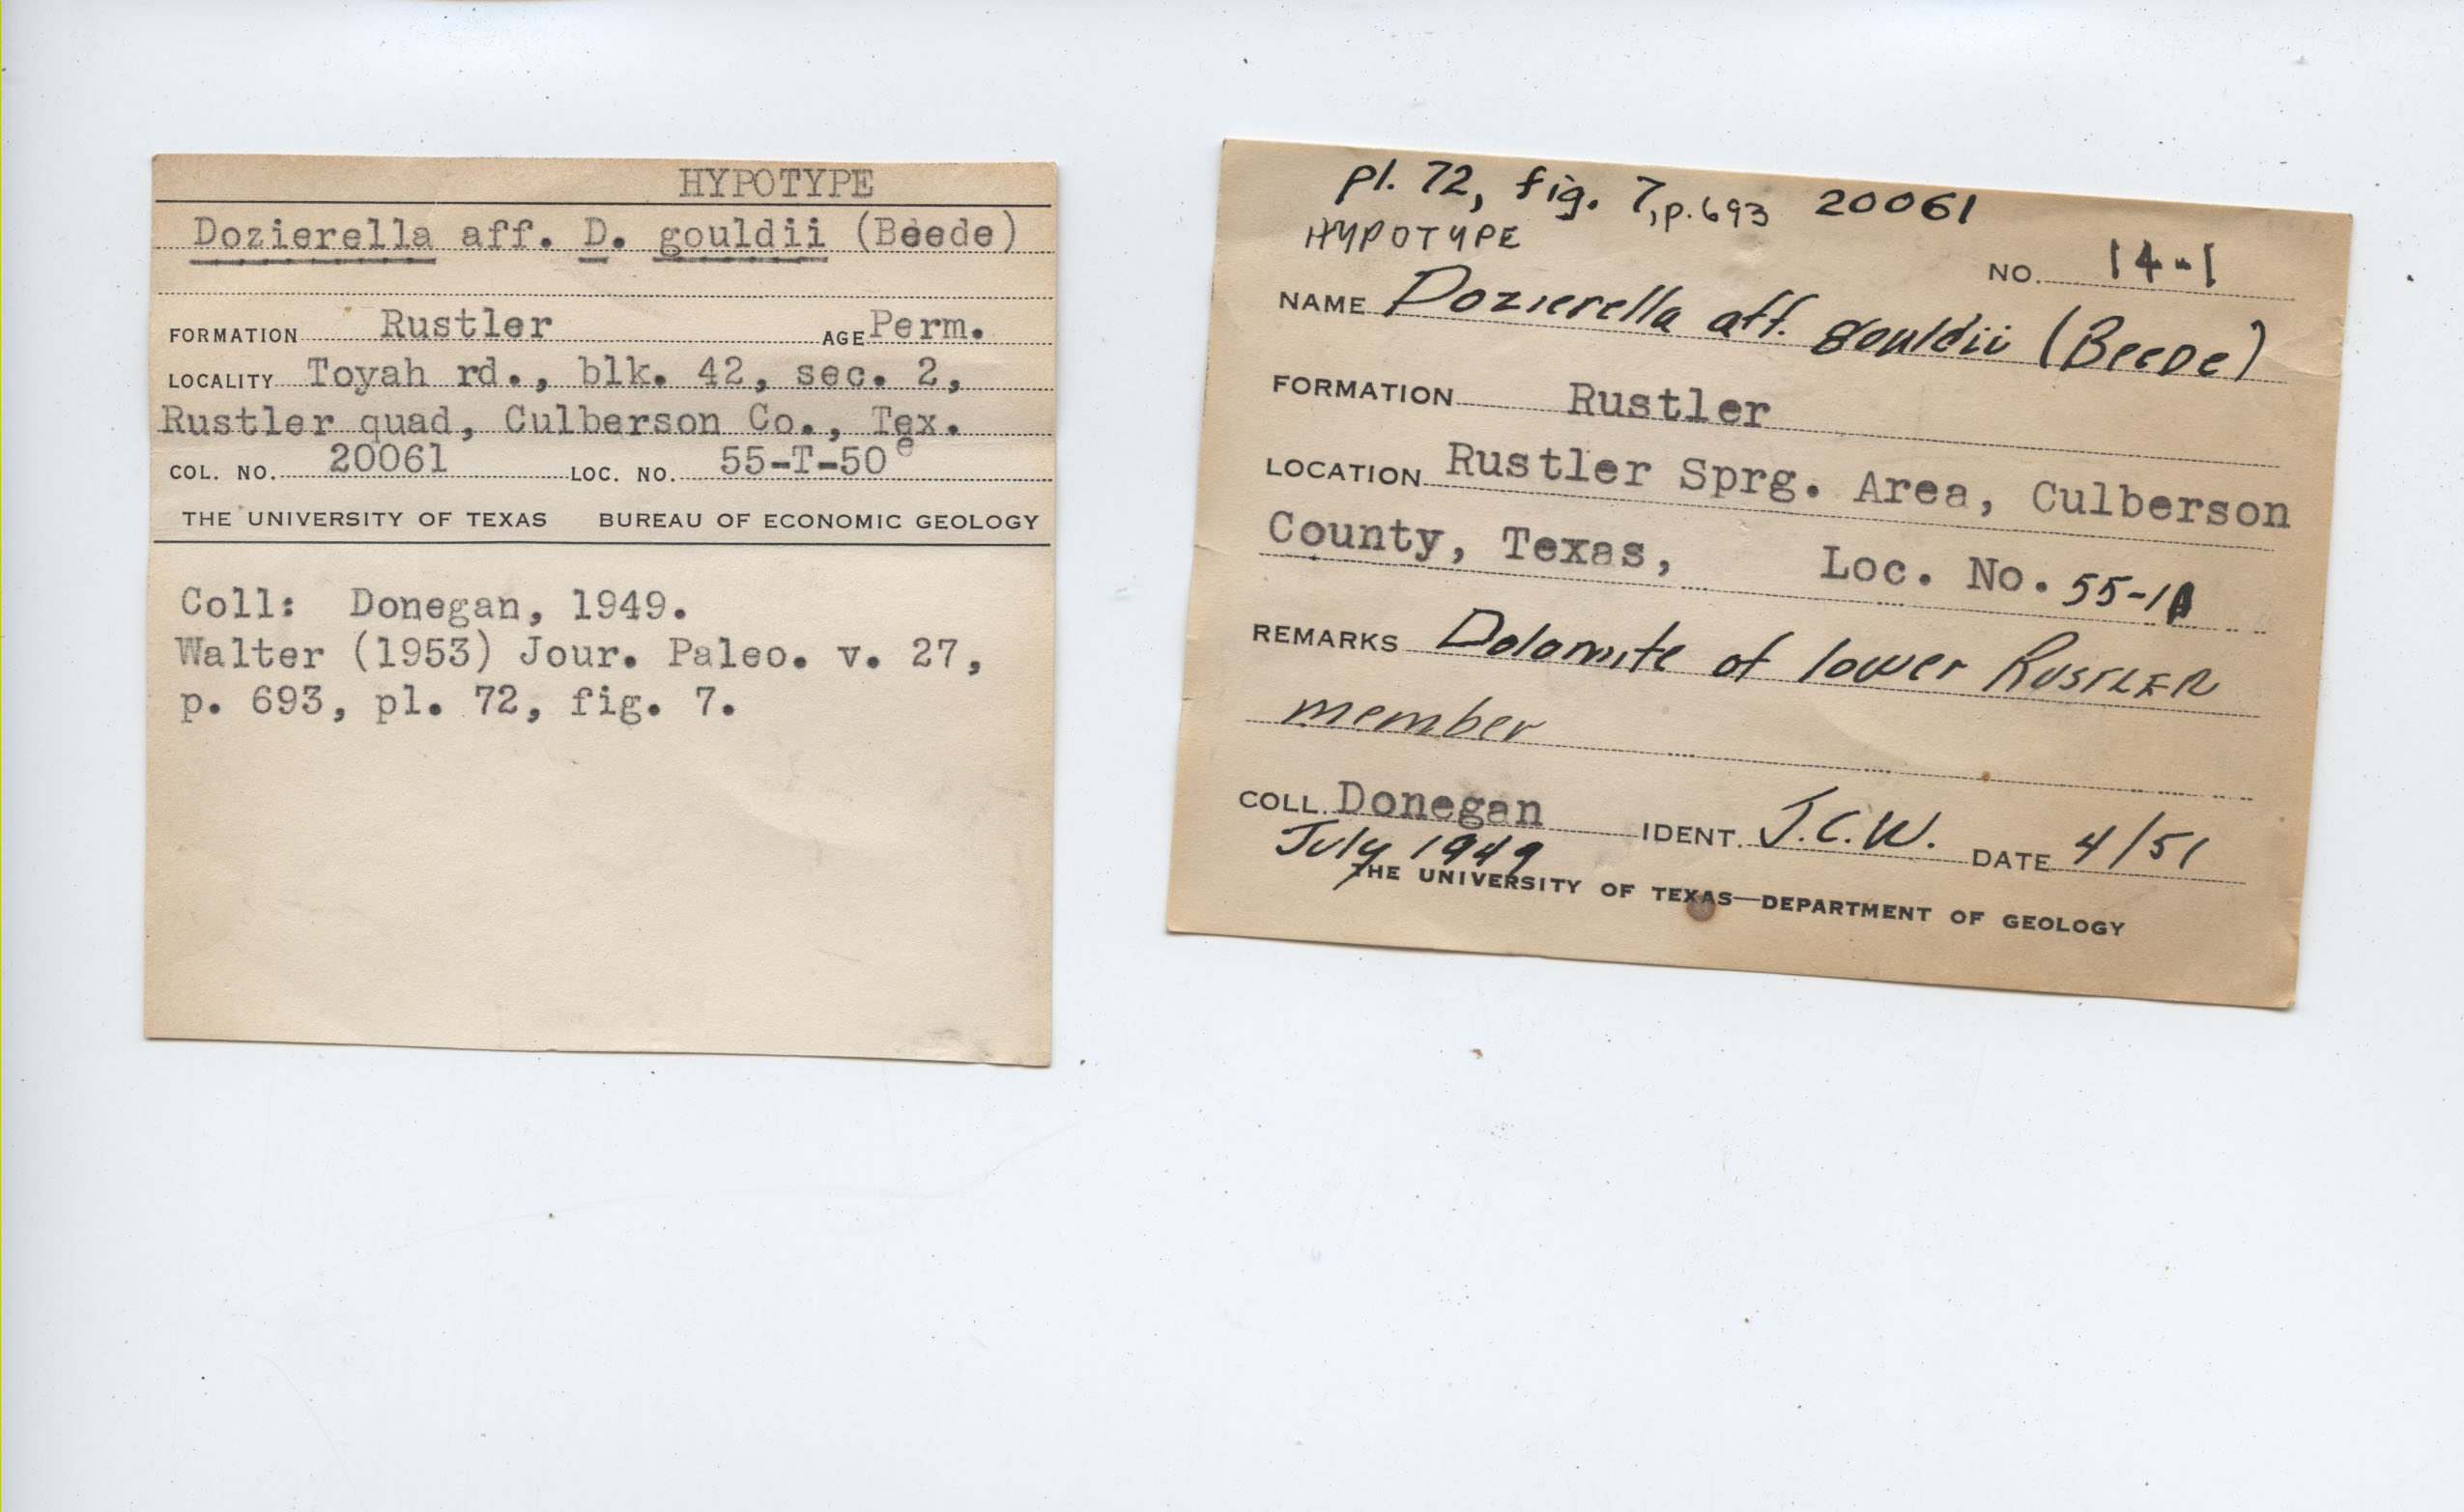 HYPOTYPE
Dozierella aff. D. gouldii (Beede)
FORMATION Rustler AGE Perm.
LOCALITY Toyah rd., blk. 42, sec. 2,
Rustler quad, Culberson Co., Tex.
COL. NO. 20061 LOC. NO. 55-T-50e
THE UNIVERSITY OF TEXAS BUREAU OF ECONOMIC GEOLOGY
Coll: Donegan, 1949.
Walter (1953) Jour. Paleo. v. 27,
p. 693, pl. 72, fig. 7.
pl. 72, fig. 7, p. 693 20061
HYPOTYPE
NO. 14-1
NAME Dozierella aff. gouldii (Beede)
FORMATION Rustler
LOCATION Rustler Sprg. Area, Culberson
County, Texas, Loc. No.
REMARKS Dolomite of lower RUSTLER
member
COLL. Donegan IDENT. J.C.W. DATE 4/51
July 1949
THE UNIVERSITY OF TEXAS—DEPARTMENT OF GEOLOGY